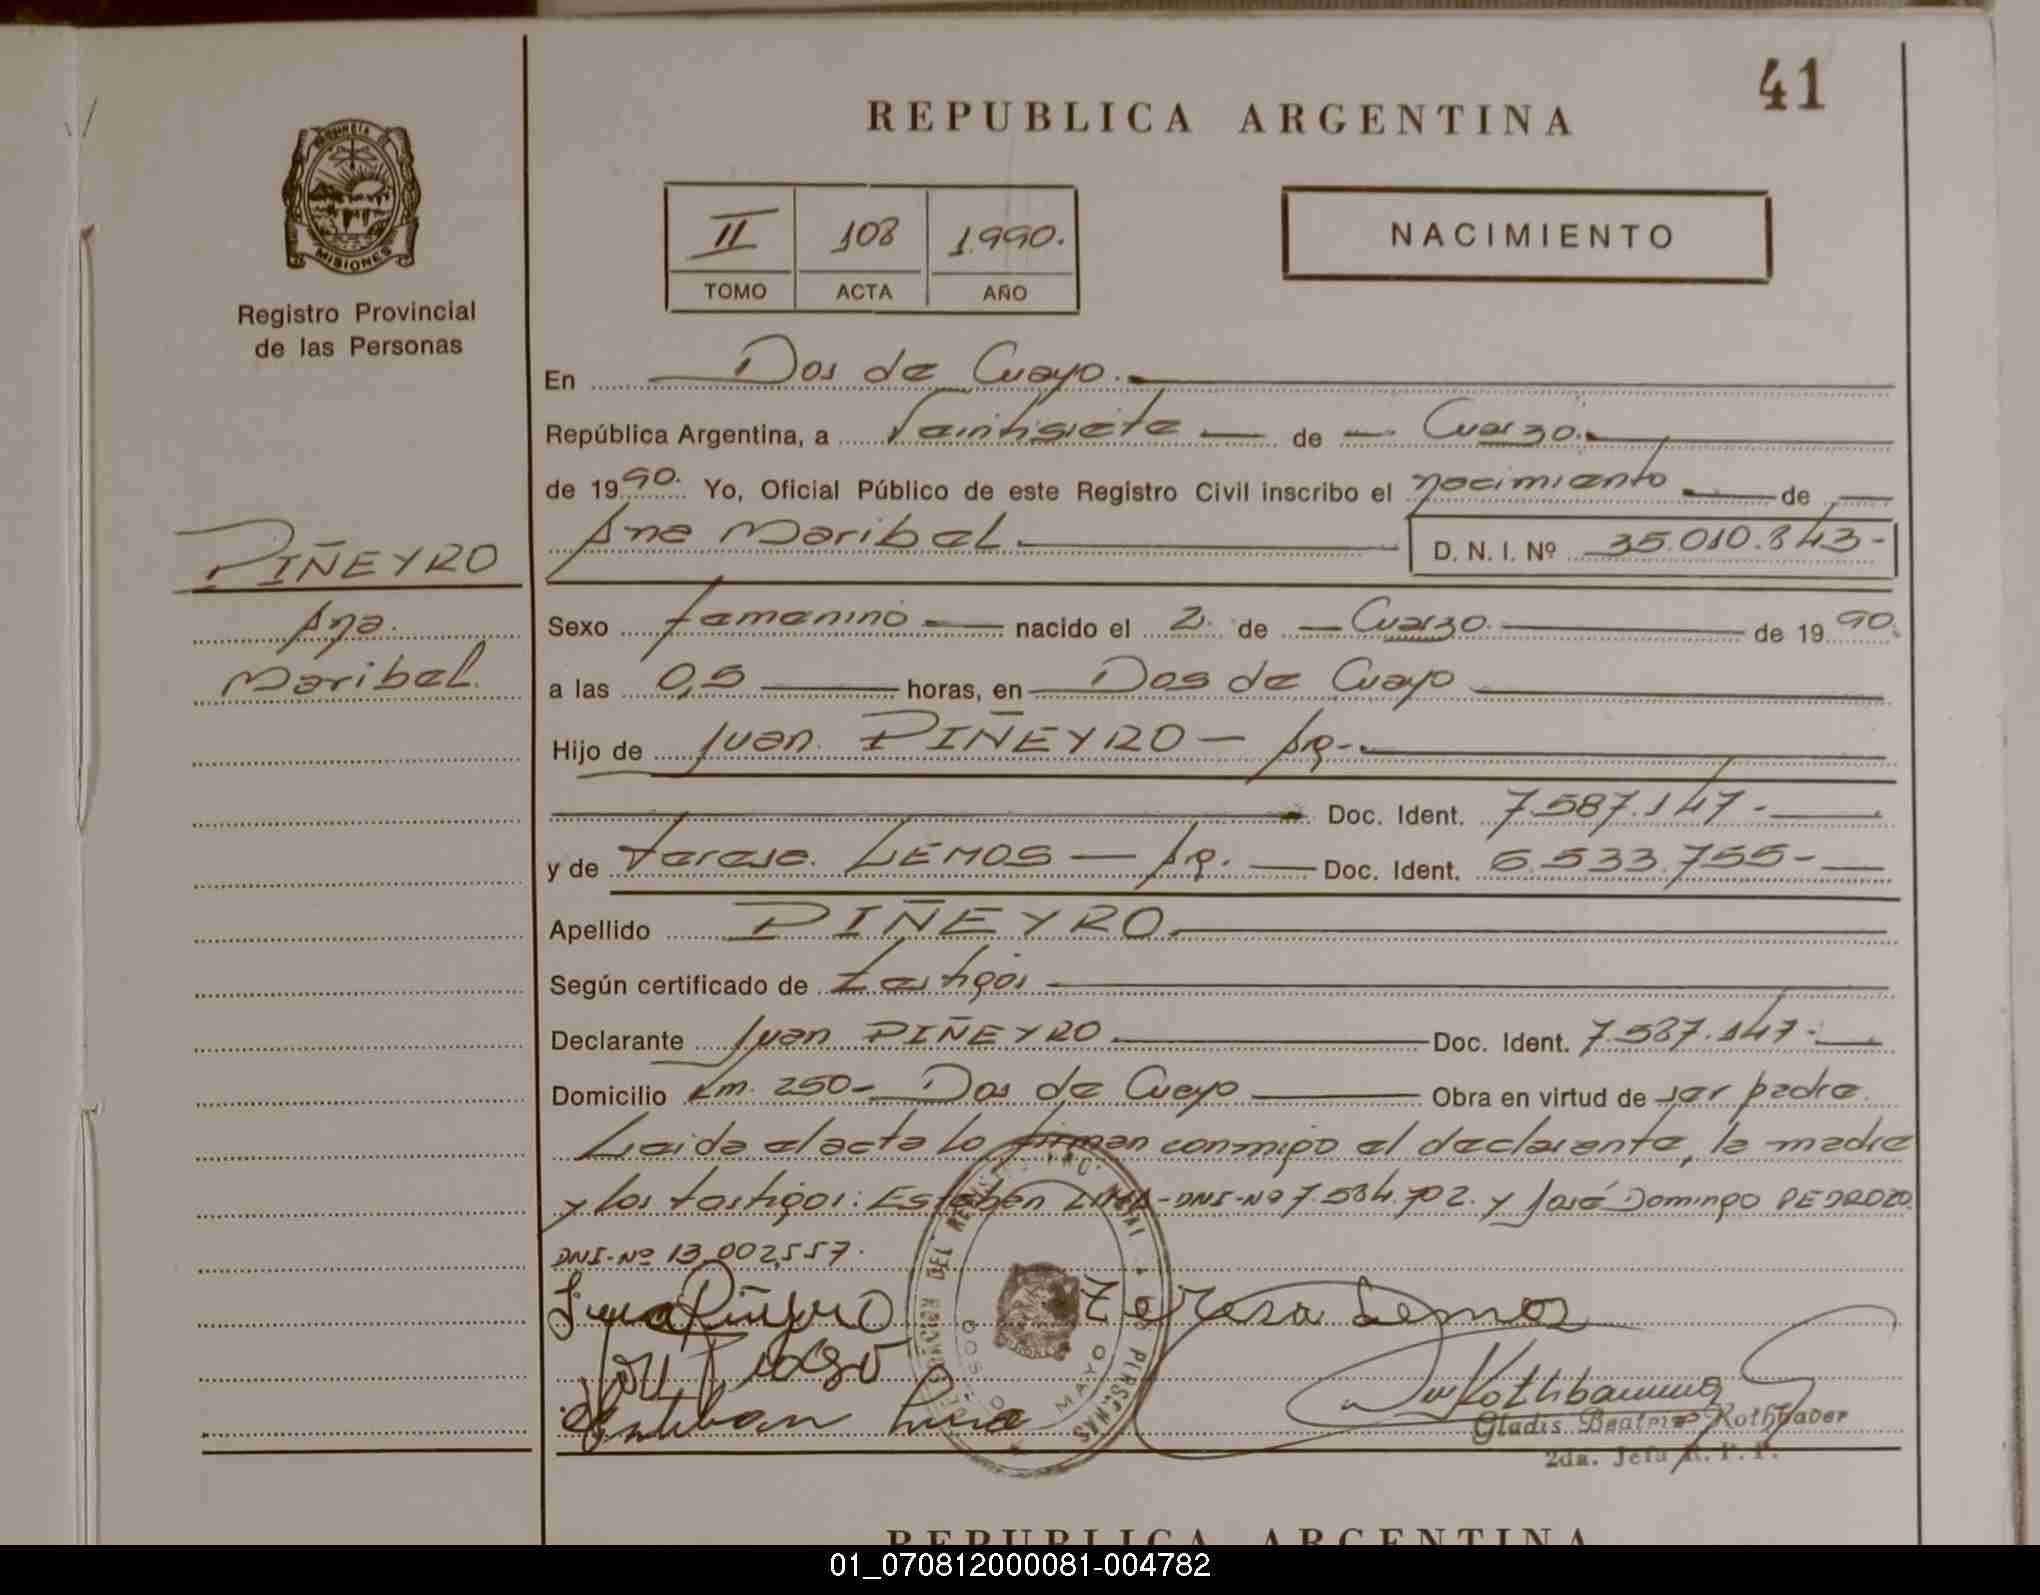 41
REPUBLICA ARGENTINA
PROVINCIA
MISIONES
Registro Provincial
de las Personas
II 108 1.990.
TOMO ACTA AÑO
NACIMIENTO
En Dos de Mayo.
República Argentina, a Veintisiete de Marzo.
de 1990. Yo, Oficial Público de este Registro Civil inscribo el nacimiento de
Ana Maribel D. N. I. Nº 35.010.843-
PIÑEYRO
Ana
Maribel.
Sexo femenino nacido el 2. de Marzo. de 1990.
a las 0,5 horas, en Dos de Mayo
Hijo de Juan PIÑEYRO - Arg-.
Doc. Ident. 7.587.147-
y de Teresa. LEMOS - Arg. Doc. Ident. 6.533.755-
Apellido PIÑEYRO.
Según certificado de testigos
Declarante Juan PIÑEYRO Doc. Ident. 7.587.147-
Domicilio Km. 250- Dos de Mayo Obra en virtud de ser padre.
Leida el acta lo firman conmigo el declarante, la madre
y los testigos: Esteban LIMA-DNI-Nº 7.584.702. y José Domingo PEDROZO.
DNI-Nº 13.002.557.
Juan Piñeyro Teresa Lemos
Esteban Lima
DELEGACION DEL REGISTRO PROVINCIAL DE LAS PERSONAS
DOS DE MAYO
Gladis Beatriz Rothbauer
2da. Jefa R. P. P.
REPUBLICA ARGENTINA
01_070812000081-004782